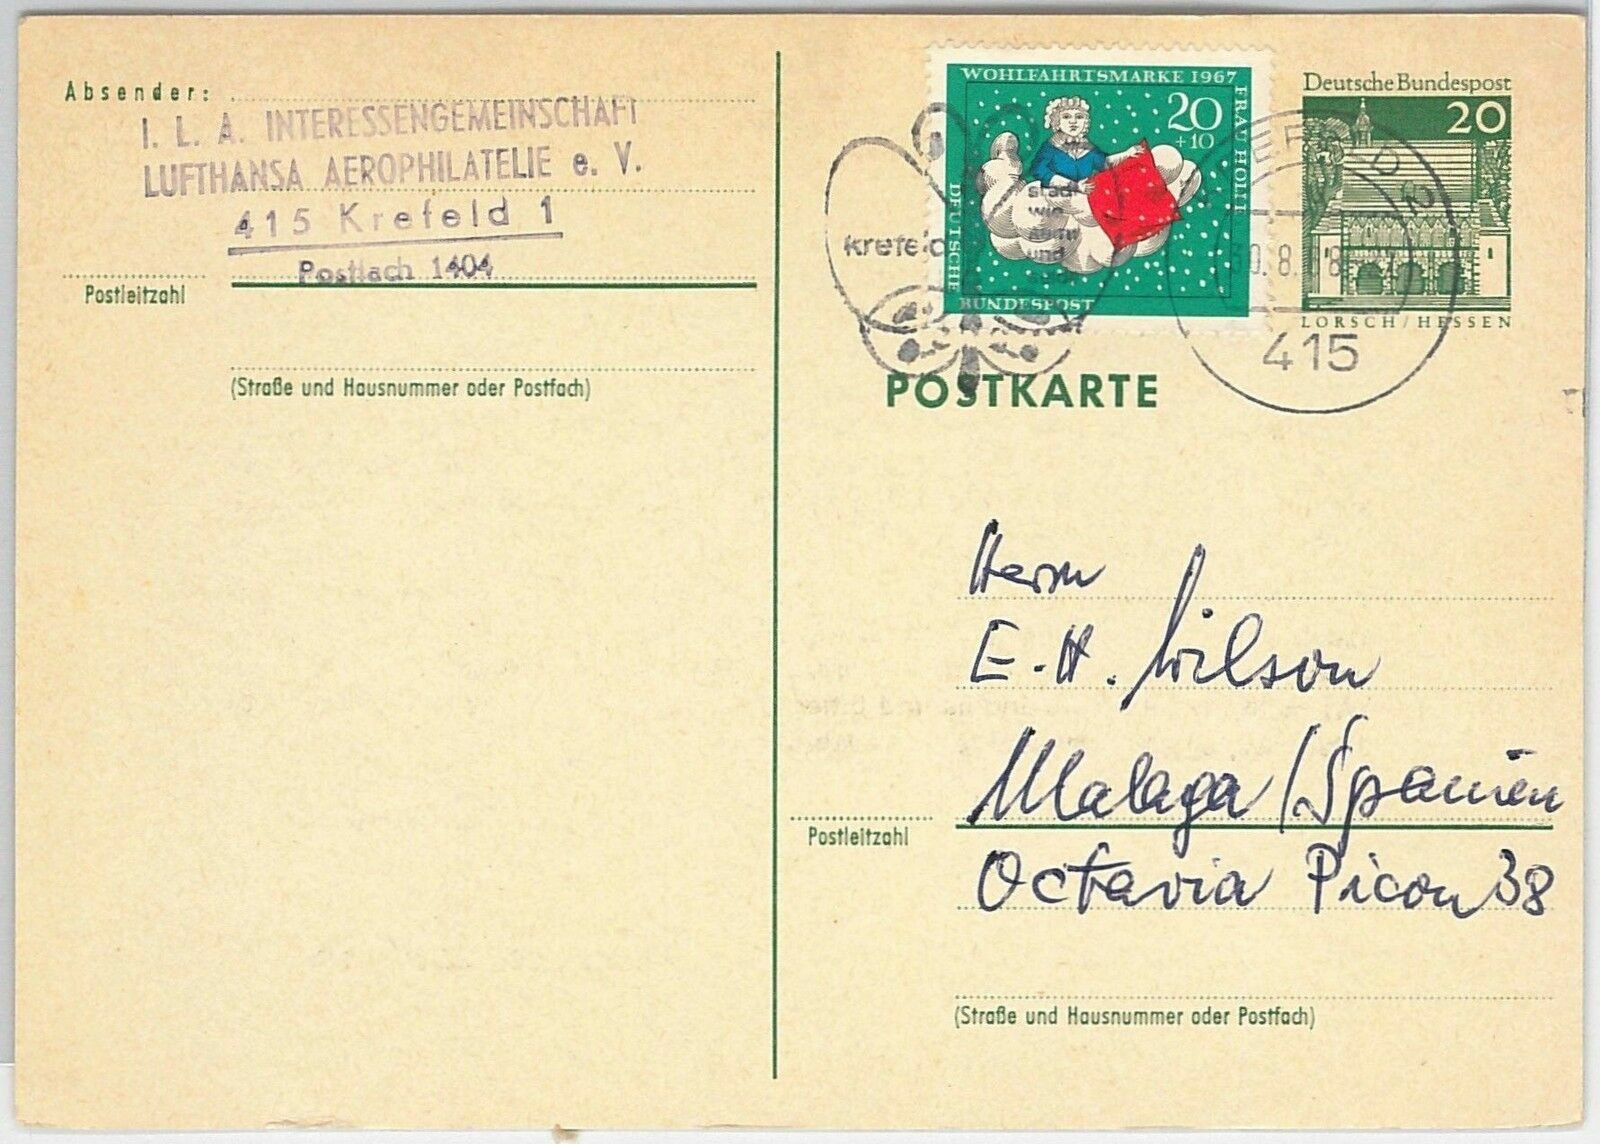 Absender:
I. L. A. INTERESSENGEMEINSCHAFT
LUFTHANSA AEROPHILATELIE e. V.
415 Krefeld 1
Postfach 1404
Postleitzahl
(Straße und Hausnummer oder Postfach)
WOHLFAHRTSMARKE 1967
FRAU HOLLE
20
+10
DEUTSCHE
BUNDESPOST
krefeld
stadt
wie
samt
und
Deutsche Bundespost
20
LORSCH/HESSEN
415
POSTKARTE
Herrn
E.H. Wilson
Malaga/Spanien
Postleitzahl
Octavia Picon 38
(Straße und Hausnummer oder Postfach)